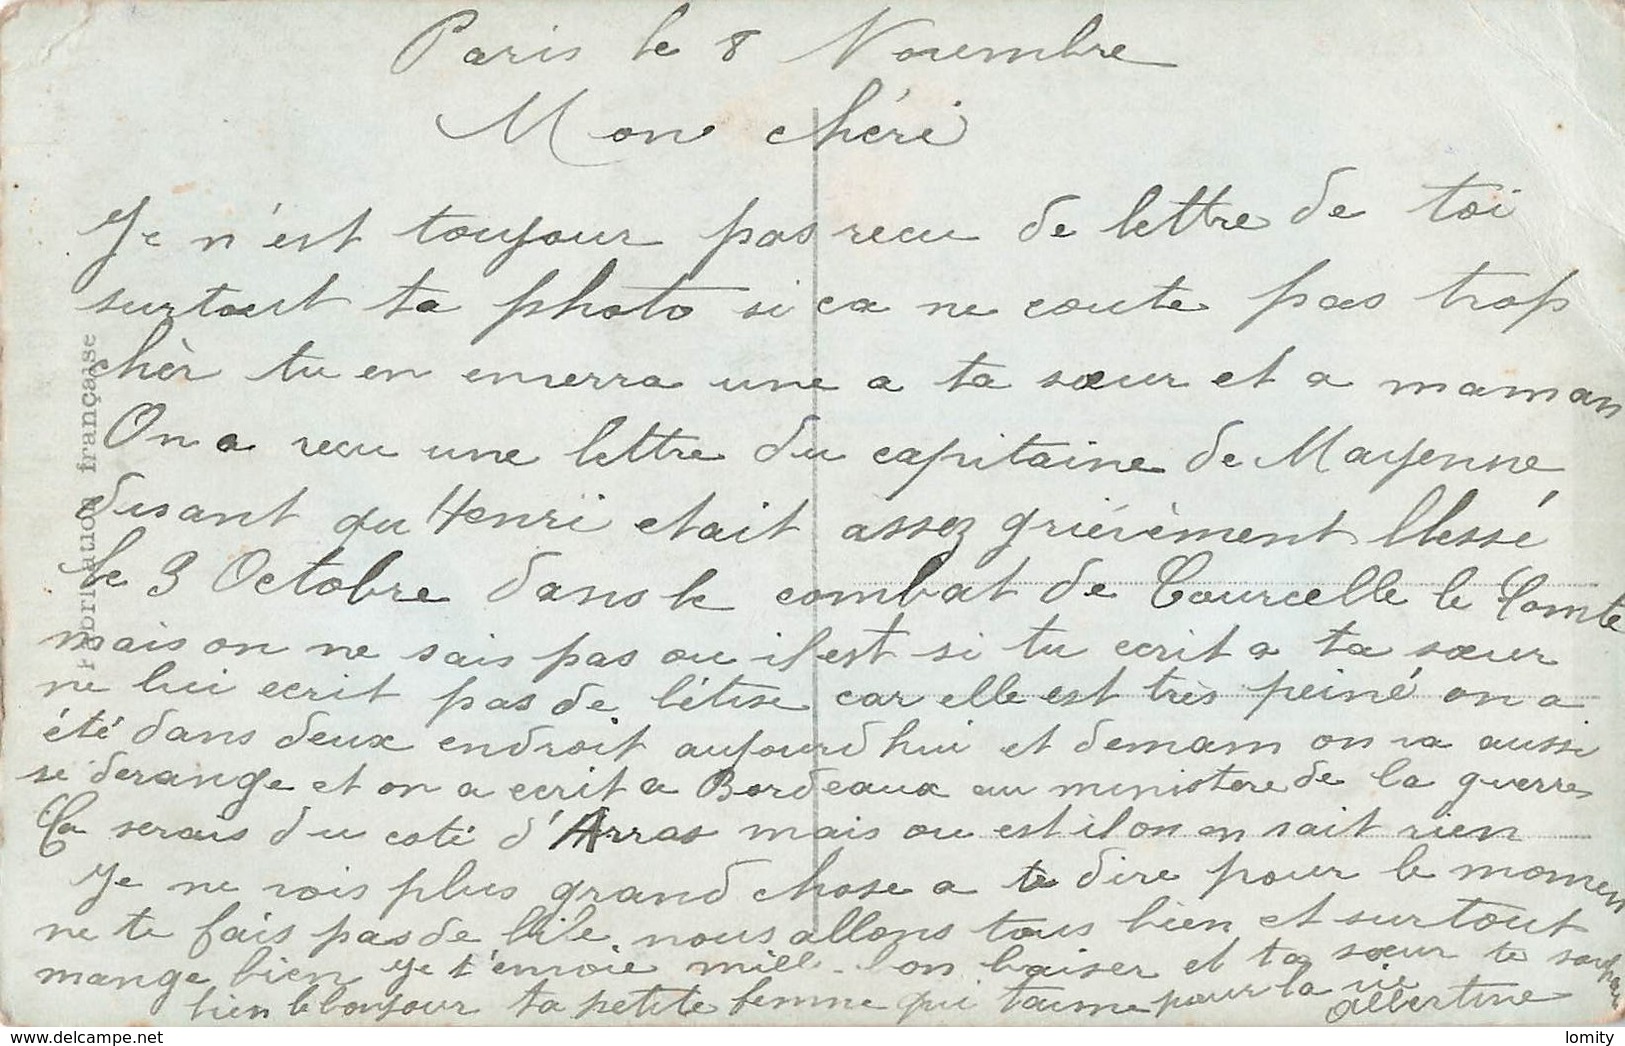 Paris le 8 Novembre
Mon chéri
Je n'est toujour pas recu de lettre de toi
surtout ta photo si ca ne coute pas trop
chèr tu en enverra une a ta sœur et a maman
On a recu une lettre du capitaine de Mayenne
disant qu Henri etait assez griévèment blessé
le 3 Octobre dans le combat de Courcelle le Comte
mais on ne sais pas ou il est si tu ecrit a ta sœur
ne lui ecrit pas de bétise car elle est très peiné on a
été dans deux endroit aujourdhui et demain on va aussi
se derange et on a ecrit a Bordeaux au ministere de la guerre
Ca serais du coté d'Arras mais ou est il on en sait rien
Je ne vois plus grand chose a te dire pour le moment
ne te fais pas de bile nous allons tous bien et surtout
mange bien je t'envoie mill bon baiser et ta sœur te
bien le bonjour ta petite femme qui t'aime pour la vie
Albertine
Fabrication française
lomity